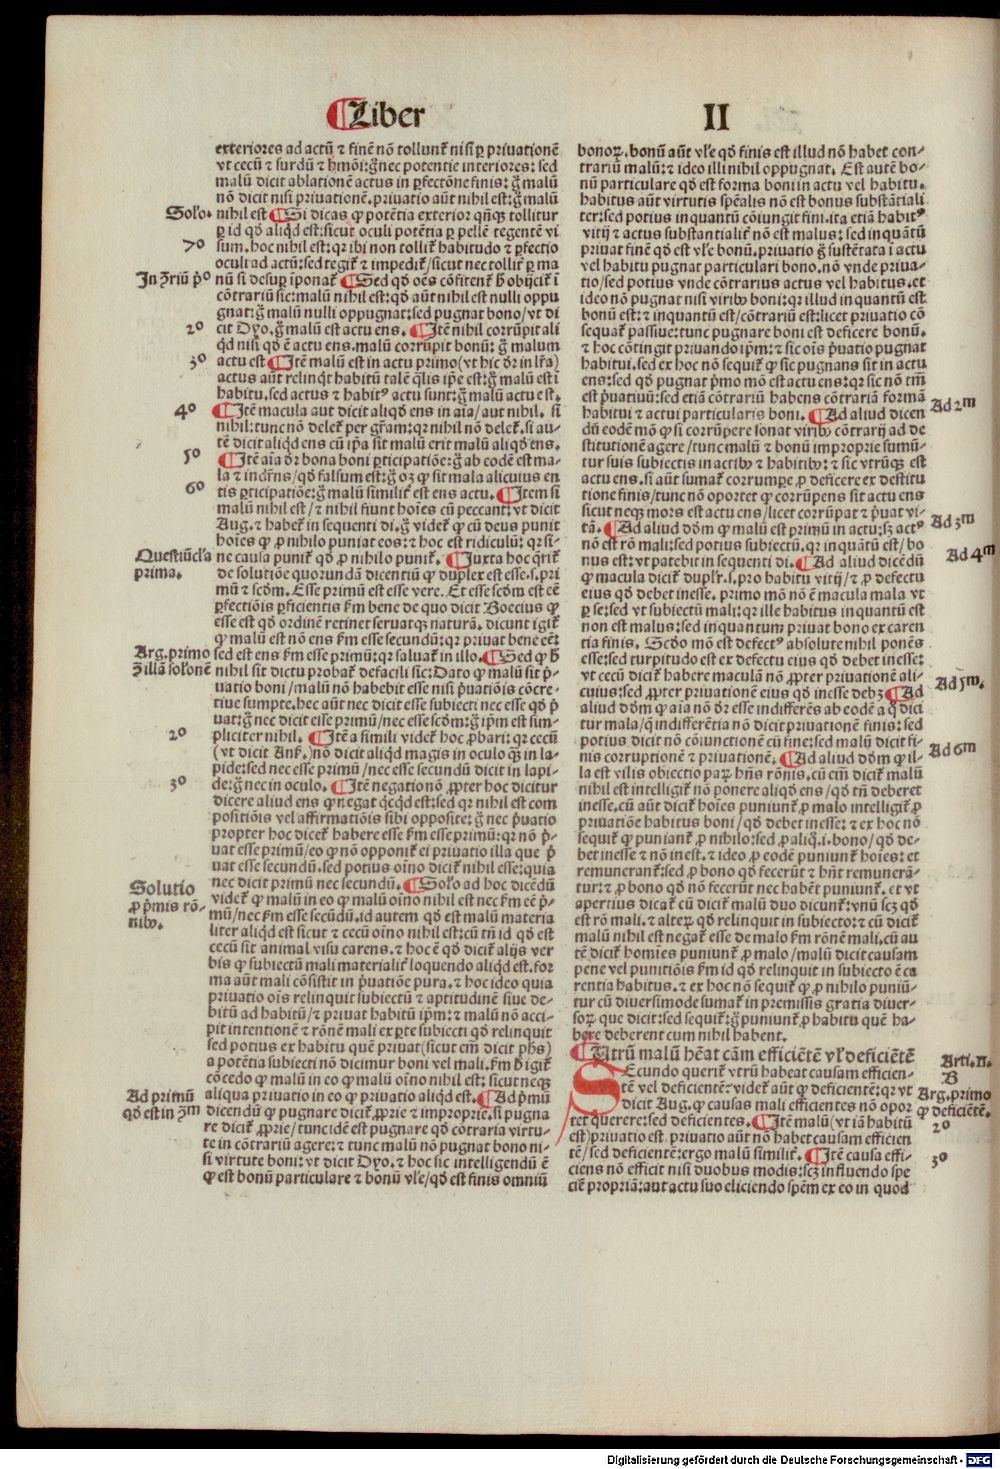 Liber II
exteriores ad actū ⁊ finē nō tollunt᷑ nisi ꝑ privationē
vt cecū ⁊ surdū ⁊ hmōi: g̃ nec potentie interiores: sed
malū dicit ablationē actus in ꝑfectōne finis: g̃ malū
nō dicit nisi privationē. privatio aūt nihil est: g̃ malū
Solo.
nihil est ¶ Si dicas ꝙ potētia exterior qñqꝫ tollitur
ꝑ id qd̄ aliqd est: sicut oculi potētia ꝑ pellē tegentē vi
7º
sum. hoc nihil est: qꝛ ibi non tollit᷑ habitudo ⁊ ꝑfectio
oculi ad actū: sed tegit᷑ ⁊ impedit᷑/ sicut nec tollit᷑ ꝑ ma
In ꝯriū p̊º
nū si desuꝑ īponat᷑ ¶ Sed qd̄ oēs cōfitent᷑ h̄ obijcit᷑ ī
cōtrariū sic: malū nihil est: qd̄ aūt nihil est nulli oppu
gnat: g̃ malū nulli oppugnat: sed pugnat bono/ vt di
2º
cit Dyo. g̃ malū est actu ens. ¶ Itē nihil corrūpit ali
qd nisi qd̄ ē actu ens. malū corrūpit bonū: g̃ malum
3º
actu est ¶ Itē malū est in actu primo (vt hic dr̄ in lr̄a)
actus aūt relinqt habitū talē q̄lis ip̄e est: g̃ malū est ī
habitu. sed actus ⁊ habitꝰ actu sunt: g̃ malū actu est.
4º
¶ Itē macula aut dicit aliqd ens in aīa/ aut nihil. si
nihil: tunc nō delet᷑ per gr̄am: qꝛ nihil nō delet᷑. si au-
tē dicit aliqd ens cū ip̄a sit malū erit malū aliqd ens.
5º
¶ Itē aīa dr̄ bona boni ꝑticipatiōe: g̃ ab eodē est ma-
la ⁊ indr̄ns/ qd̄ falsum est: g̃ oꝫ ꝙ sit mala alicuius en
6º
tis ꝑticipatiōe: g̃ malū similit᷑ est ens actu. ¶ Item si
malū nihil est/ ⁊ nihil fiunt hoīes cū peccant: vt dicit
Aug. ⁊ habet᷑ in sequenti di. g̃ videt᷑ ꝙ cū deus punit
hoīes ꝙ ꝓ nihilo puniat eos: ⁊ hoc est ridiculū: qꝛ si-
Questiūcl'a
ne causa punit᷑ qd̄ ꝓ nihilo punit᷑. ¶ Juxta hoc q̄rit᷑
prima.
de solutiōe quorundā dicentiū ꝙ duplex est esse. s. pri
mū ⁊ scdm̄. Esse primū est esse vere. Et esse scdm̄ est eē
ꝑfectiōis ꝑficientis s'm bene de quo dicit Boecius ꝙ
esse est qd̄ ordinē retinet servatqꝫ naturā. dicunt igit᷑
ꝙ malū est nō ens s'm esse secundū: qꝛ privat bene eē:
Arg. primo
sed est ens s'm esse primū: qꝛ salvat᷑ in illo. ¶ Sed ꝙ h̄
ꝯ illā solōnē
nihil sit dictu probat᷑ defacili sic: Dato ꝙ malū sit p̄-
vatio boni/ malū nō habebit esse nisi p̄vatiōis cōcre-
tive sumpte. hec aūt nec dicit esse subiecti nec esse qd̄ p̄
vat: g̃ nec dicit esse primū/ nec esse scdm̄: g̃ ip̄m est sim-
2º
pliciter nihil. ¶ Itē a simili videt᷑ hoc ꝓbari: qꝛ cecū
(vt dicit Ans̃.) nō dicit aliqd magis in oculo qꝫ in la-
pide: sed nec esse primū/ nec esse secundū dicit in lapi-
3º
de: g̃ nec in oculo. ¶ Itē negationō ꝓpter hoc dicitur
dicere aliud ens ꝙ negat qcqd est: sed qꝛ nihil est com
positiōis vel affirmatiōis sibi opposite: g̃ nec p̄vatio
propter hoc dicet᷑ habere esse s'm esse primū: qꝛ nō p̄-
vat esse primū/ eo ꝙ nō opponit᷑ ei privatio illa que p̄
vat esse secundū. sed potius oīno dicit᷑ nihil esse: quia
nec dicit primū nec secundū. ¶ Solo ad hoc dicēdū
Solutio
ꝓ p̄mis rō-
nibꝫ.
videt᷑ ꝙ malū in eo ꝙ malū oīno nihil est nec s'm eē p̄-
mū/ nec s'm esse secūdū. id autem qd̄ est malū materia
liter aliqd est sicut ⁊ cecū oīno nihil est: cū tn̄ id qd̄ est
cecū sit animal visu carens. ⁊ hoc ē qd̄ dicit᷑ alijs ver
bis ꝙ subiectū mali materialit᷑ loquendo aliqd est. for
ma aūt mali cōsistit in p̄vatiōe pura. ⁊ hoc ideo quia
privatio oīs relinquit subiectū ⁊ aptitudinē sive de-
bitū ad habitū/ ⁊ privat habitū ip̄m: ⁊ malū nō acci-
pit intentionē ⁊ rōnē mali ex ꝑte subiecti qd̄ relinquit
sed potius ex habitu quē privat (sicut em̄ dicit ph̄s)
a potētia subiecti nō dicimur boni vel mali. s'm h̄ igit᷑
cōcedo ꝙ malū in eo ꝙ malū oīno nihil est: sicut neqꝫ
Ad primū
aliqua privatio in eo ꝙ privatio aliqd est. ¶ Ad p̄mū
qd̄ est in ꝯm
dicendū ꝙ pugnare dicit᷑ ꝓprie ⁊ improprie. si pugna
re dicit᷑ ꝓprie/ tunc idē est pugnare qd̄ cōtraria virtu-
te in cōtrariū agere: ⁊ tunc malū nō pugnat bono ni-
si virtute boni: vt dicit Dyo. ⁊ hoc sic intelligendū ē
ꝙ est bonū particulare ⁊ bonū vl'e/ qd̄ est finis omniū
bonoꝝ. bonū aūt vl'e qd̄ finis est illud nō habet con-
trariū malū: ⁊ ideo illi nihil oppugnat. Est autē bo-
nū particulare qd̄ est forma boni in actu vel habitu.
habitus aūt virtutis sp̄ealis nō est bonus substātiali
ter: sed potius inquantū cōiungit fini. ita etiā habitꝰ
vitij ⁊ actus substantialit᷑ nō est malus: sed inquātū
privat finē qd̄ est vl'e bonū. privatio g̃ sustētata ī actu
vel habitu pugnat particulari bono. nō vnde priva-
tio/ sed potius vnde cōtrarius actus vel habitus. et
ideo nō pugnat nisi viribꝫ boni: qꝛ illud inquantū est
bonū est: ⁊ inquantū est/ cōtrariū est: licet privatio cō
sequat᷑ passive: tunc pugnare boni est deficere bonū.
⁊ hoc cōtingit privando ip̄m: ⁊ sic oīs p̄vatio pugnat
habitui. sed ex hoc nō sequit᷑ ꝙ sic pugnans sit in actu
ens: sed qd̄ pugnat p̄mo mō est actu ens: qꝛ sic nō tm̄
est p̄vativū: sed etiā cōtrariū habens cōtrariā formā
Ad 2m
habitui ⁊ actui particularis boni. ¶ Ad aliud dicen
dū eodē mō ꝙ si corrūpere sonat viribꝫ cōtrarij ad de
stitutionē agere/ tunc malū ⁊ bonū improprie sumū-
tur suis subiectis in actibꝫ ⁊ habitibꝫ: ⁊ sic vtrūqꝫ est
actu ens. si aūt sumat᷑ corrumpere ꝓ deficere ex destitu
tione finis/ tunc nō oportet ꝙ corrūpens sit actu ens
sicut neqꝫ mors est actu ens/ licet corrūpat ⁊ p̄vat vi-
Ad 3m
tā. ¶ Ad aliud dd̄m ꝙ malū est primū in actu: sꝫ actꝰ
nō est rō mali: sed potius subiectū. qꝛ inquātū est/ bo
Ad 4m
nus est: vt patebit in sequenti di. ¶ Ad aliud dicēdū
ꝙ macula dicit᷑ duplr̄. s. pro habitu vitij/ ⁊ ꝓ defectu
eius qd̄ debet inesse. primo mō nō ē macula mala vt
ꝑ se: sed vt subiectū mali: qꝛ ille habitus inquantū est
non est malus: sed inquantum privat bono ex caren
tia finis. Scd̄o mō est defectꝰ absolute nihil ponēs
esse: sed turpitudo est ex defectu eius qd̄ debet inesse:
vt cecū dicit᷑ habere maculā nō ꝓpter privationē ali-
Ad 5m.
cuius: sed ꝓpter privationē eius qd̄ inesse debꝫ ¶ Ad
aliud dd̄m ꝙ aīa nō dr̄ esse indifferēs ab eodē a q̊ dici
tur mala/ q indifferētia nō dicit privationē finis: sed
potius dicit nō cōiunctionē cū fine: sed malū dicit fi-
Ad 6m
nis corruptionē ⁊ privationē. ¶ Ad aliud dd̄m ꝙ il-
la est vilis obiectio paꝝ hn̄s rōnis. cū em̄ dicit᷑ malū
nihil est intelligit᷑ nō ponere aliqd ens/ qd̄ tn̄ deberet
inesse. cū aūt dicit᷑ hoīes puniunt᷑ ꝓ malo intelligit᷑ ꝓ
privatiōe habitus boni/ qd̄ debet inesse: ⁊ ex hoc nō
sequit᷑ ꝙ puniant᷑ ꝓ nihilo: sed ꝓ aliq̊. i. bono/ qd̄ de-
bet inesse ⁊ nō inest. ⁊ ideo ꝓ eodē puniunt᷑ hoīes: et
remunerant᷑: sed ꝓ bono qd̄ fecerūt ⁊ hn̄t remunerā-
tur: ⁊ ꝓ bono qd̄ nō fecerūt nec habēt puniunt᷑. et vt
apertius dicat᷑ cū dicit᷑ malū duo dicunt᷑: vnū scꝫ qd̄
est rō mali. ⁊ alteꝝ qd̄ relinquit in subiecto: ⁊ cū dicit᷑
malū nihil est negat᷑ esse de malo s'm rōnē mali. cū au
tē dicit᷑ homies puniunt᷑ ꝓ malo/ malū dicit causam
pene vel punitiōis s'm id qd̄ relinquit in subiecto ē ca
rentia habitus. ⁊ ex hoc nō sequit᷑ ꝙ ꝓ nihilo puniū-
tur cū diversimode sumat᷑ in premissis gratia diver-
soꝝ que dicit: sed sequit᷑: g̃ puniunt᷑ ꝓ habitu quē ha-
bere deberent cum nihil habent.
Arti. II.
B
¶ Utrū malū hēat cām efficiētē vl' deficiētē
Secundo querit᷑ vtrū habeat causam efficien-
Arg. primo
tē vel deficientē: videt᷑ aūt ꝙ deficientē: qꝛ vt
ꝙ deficiētē.
dicit Aug. ꝙ causas mali efficientes nō opor
2º
tet querere: sed deficientes. ¶ Itē malū (vt iā habitū
est) privatio est. privatio aūt nō habet causam efficien
3º
tē/ sed deficientē: ergo malū similit᷑. ¶ Itē causa effi-
ciens nō efficit nisi duobus modis: scꝫ influendo spe
ciē propriā: aut actu suo eliciendo spēm ex eo in quod
Digitalisierung gefördert durch die Deutsche Forschungsgemeinschaft - DFG